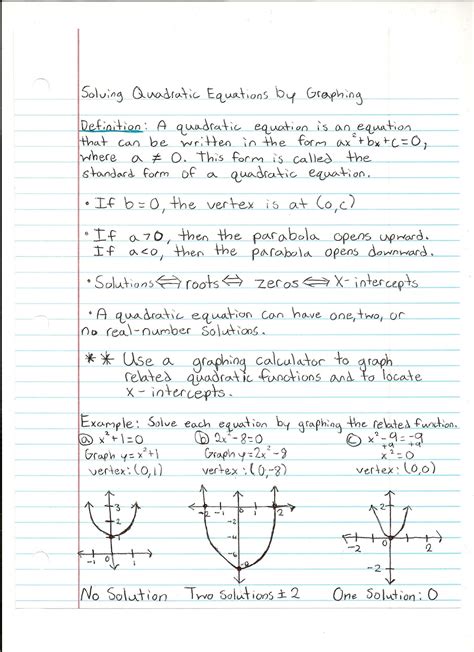 Solving Quadratic Equations by Graphing
Definition: A quadratic equation is an equation
that can be written in the form ax²+bx+c=0,
where a ≠ 0. This form is called the
standard form of a quadratic equation.
• If b=0, the vertex is at (0,c)
• If a>0, then the parabola opens upward.
If a<0, then the parabola opens downward.
• Solutions ⟺ roots ⟺ zeros ⟺ X-intercepts
• A quadratic equation can have one, two, or
no real-number solutions.
** Use a graphing calculator to graph
related quadratic functions and to locate
x-intercepts.
Example: Solve each equation by graphing the related function.
ⓐ x²+1=0 ⓑ 2x²-8=0 ⓒ x²-9=-9
+9 +9
Graph y=x²+1 Graph y=2x²-8 x²=0
vertex: (0,1) vertex: (0,-8) vertex: (0,0)
3 -2 -1 1 2 2
2 -2
1 -4 -2 2
-1 1 -6 -2
-8
No Solution Two Solutions ±2 One Solution: 0